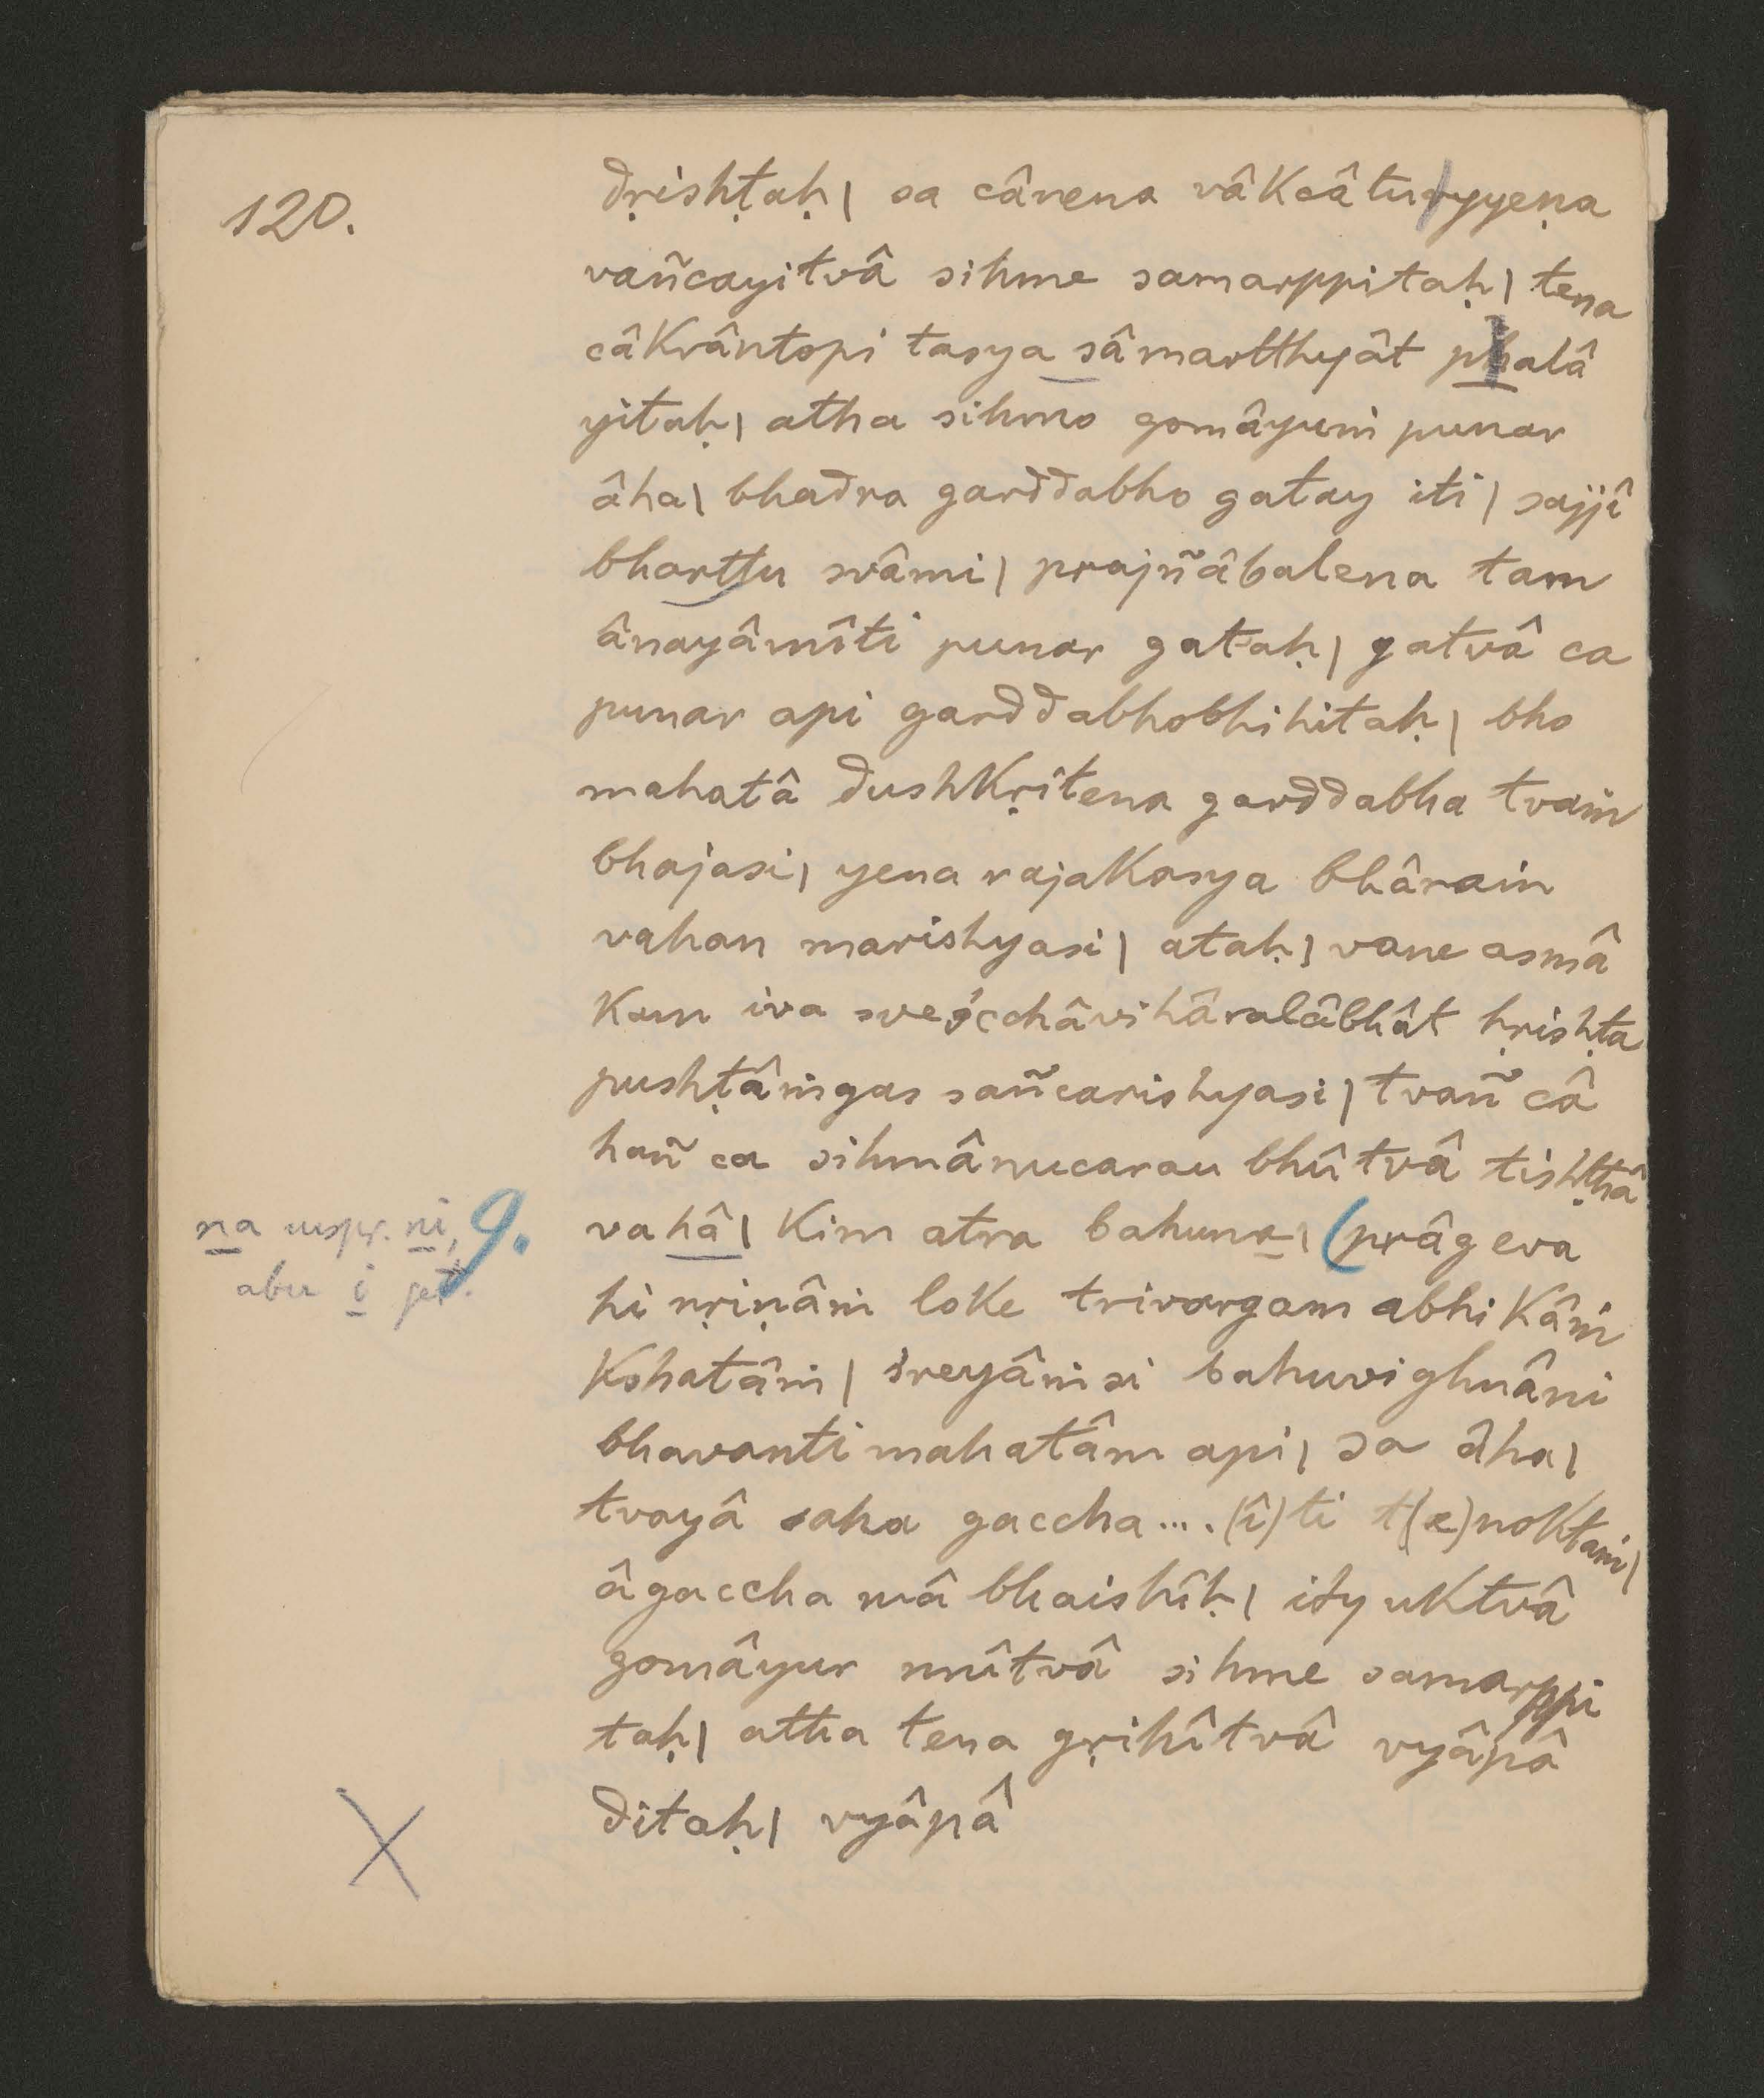 120.
dṛishṭaḥ| sa cânena vâkcâturyyeṇa
vañcayitvâ sihme samarppitaḥ| tena
câkrântopi tasya sâmartthyât phalâ
yitaḥ| atha sihmo gomâyuṁ punar
âha| bhadra garddabho gatay iti| sajjî
bharttu svâmi| prajñâbalena tam
ânayâmîti punar gataḥ| gatvâ ca
punar api garddabhobhihitaḥ| bho
mahatâ dushkṛitena garddabha tvaṁ
bhajasi| yena rajakasya bhâraṁ
vahan marishyasi| ataḥ| vane asmâ
kam iva svecchâvihâralâbhât hṛishṭa
pushṭâṁgas sañcarishyasi| tvañ câ
hañ ca sihmânucarau bhûtvâ tishṭhâ
vahâ| kim atra bahuna| (prâg eva
na urspr. ni, 9.
aber i get.
hi nṛiṇâṁ loke trivargam abhikâṁ
kshatâṁ| śreyâṁsi bahuvighnâni
bhavanti mahatâm api| sa âha|
tvayâ saha gaccha....(î)ti t(e)noktaṁ|
âgaccha mâ bhaishîḥ| ity uktvâ
gomâyur nnîtvâ sihme samarppi
taḥ| atha tena gṛihîtvâ vyâpâ
ditaḥ| vyâpâ